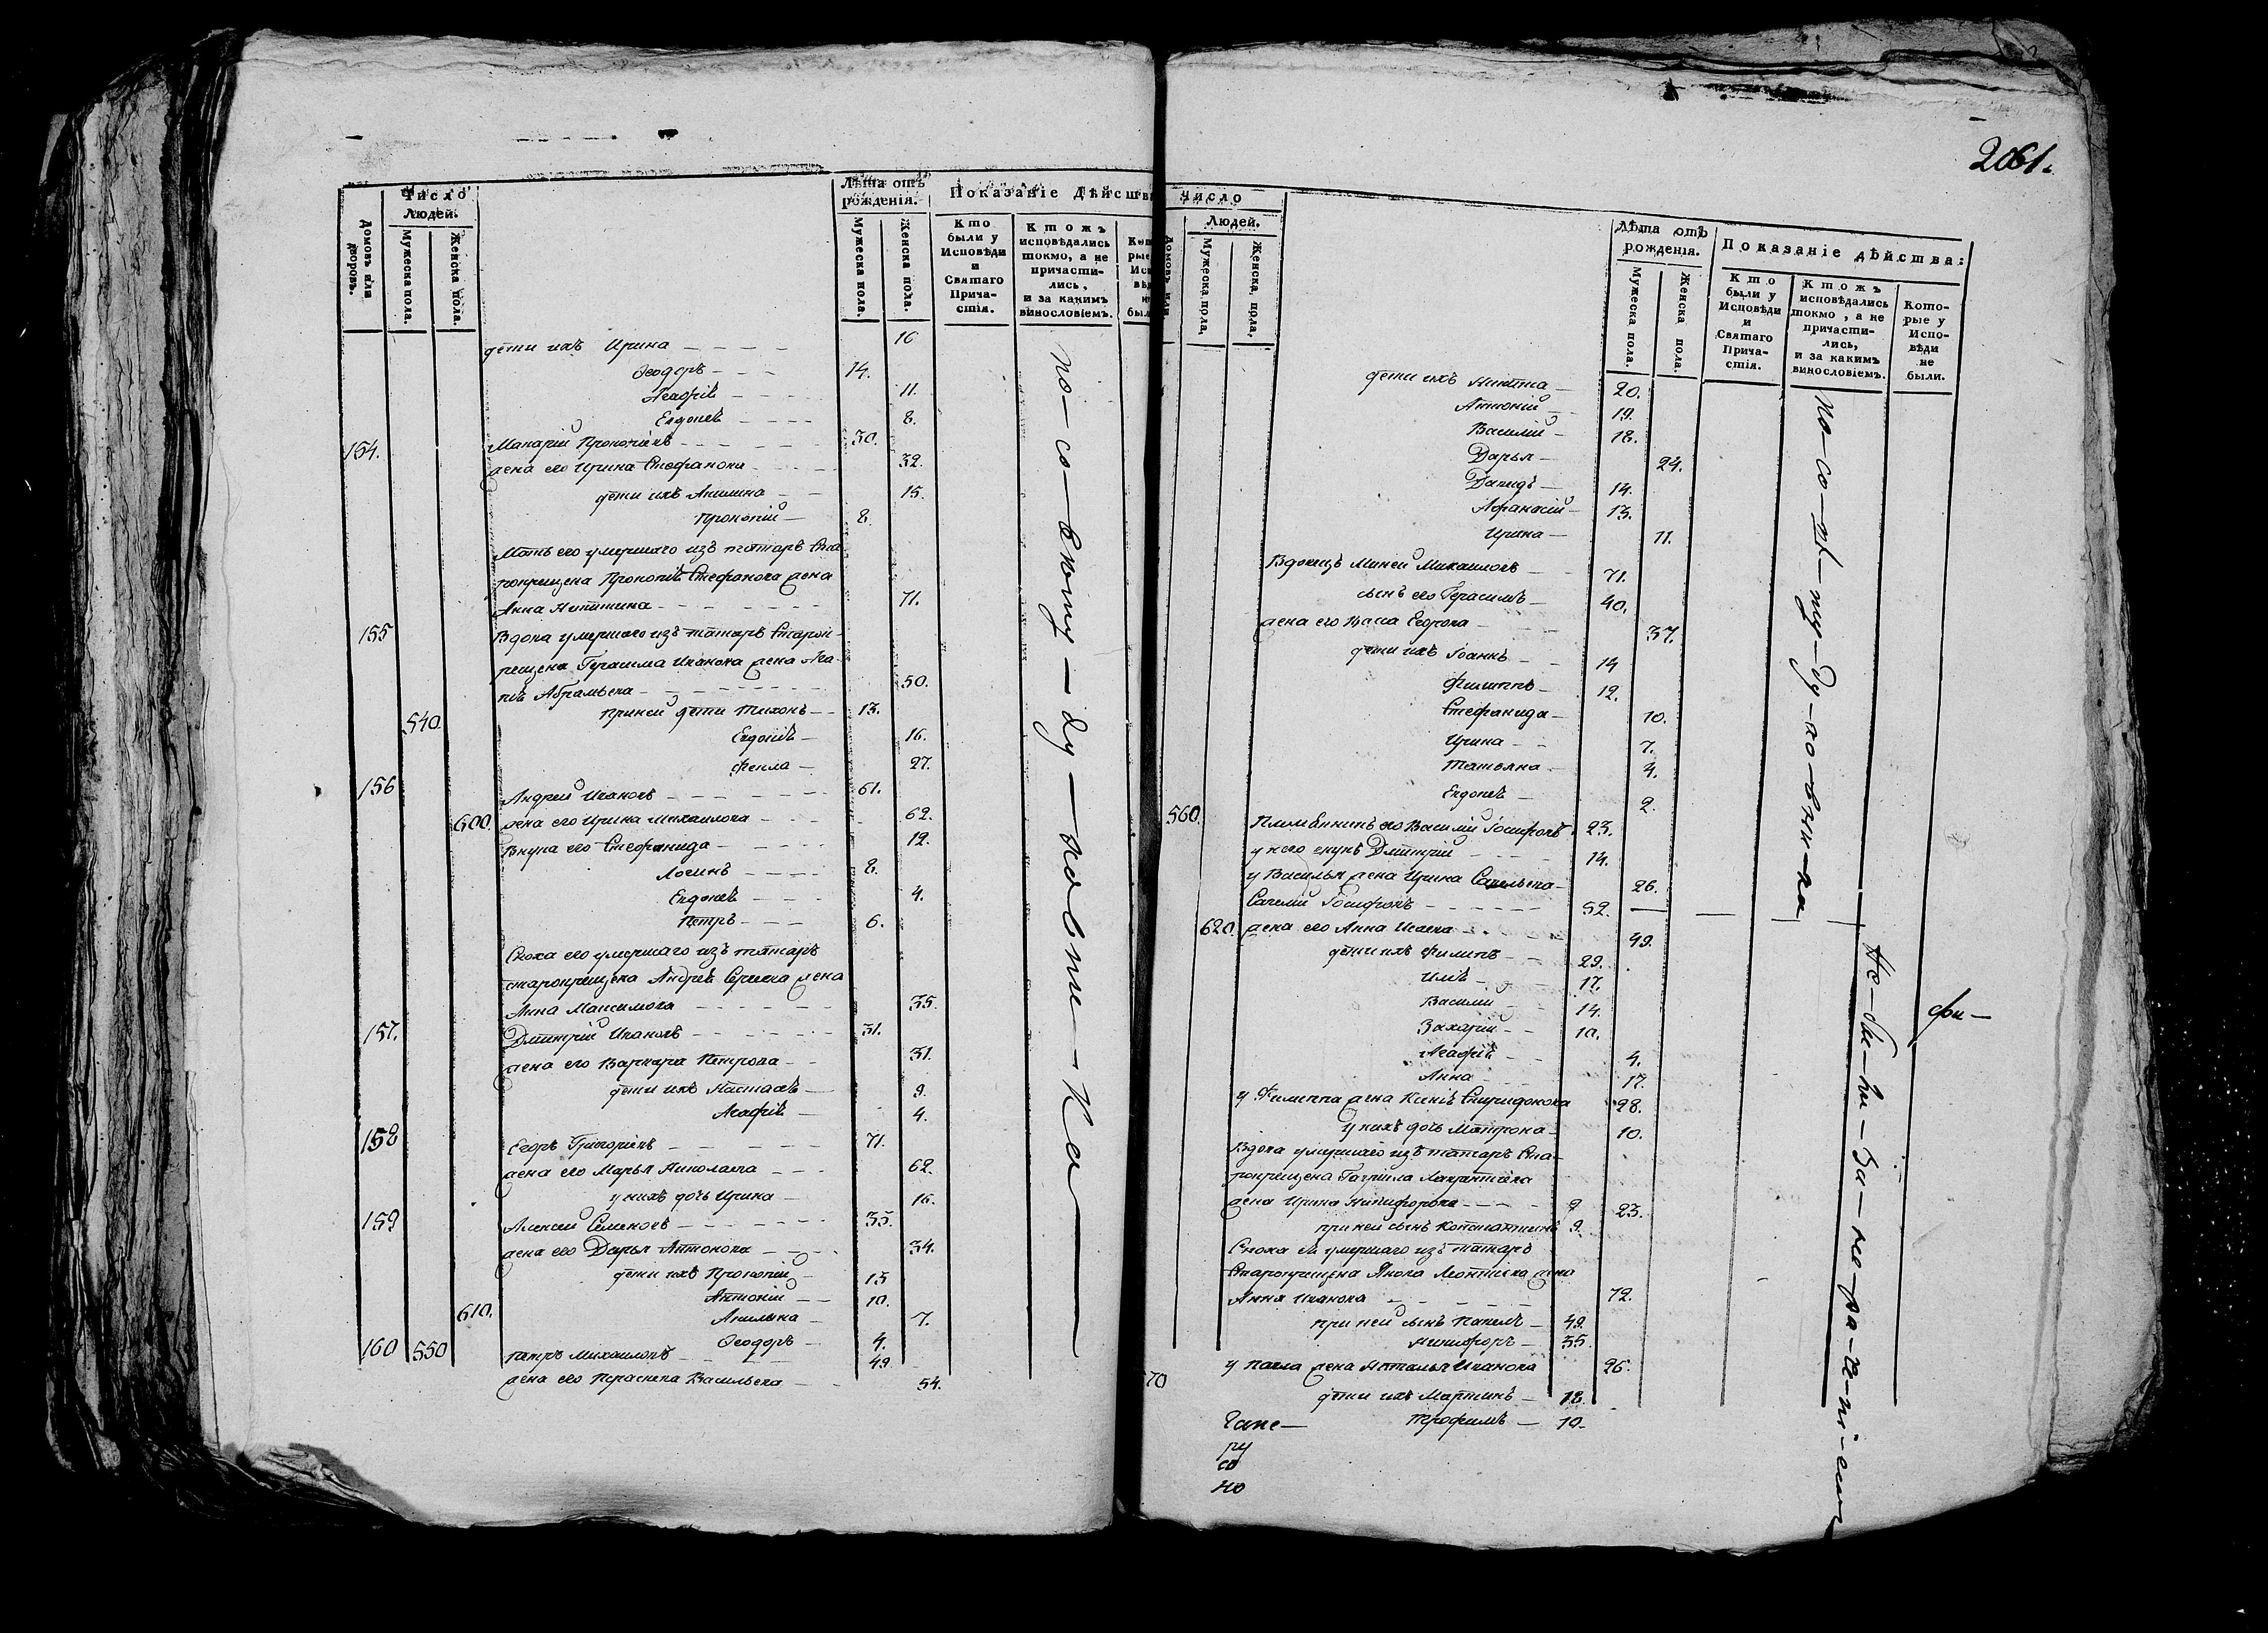 2061.
Число
Людей.
Домовъ или дворовъ.
Мужеска пола.
Женска пола.
Лѣта отъ рожденія.
Мужеска пола.
Женска пола.
Показаніе Дѣйств
Кто были у Исповѣди и Святаго Причастія.
Ктожъ исповѣдались токмо, а не причастились, и за какимъ винословіемъ.
дети ихъ Ирина 16
Ѳеодоръ 14.
Агафiѣ 11.
Евдокеѣ 8.
154. Макарий Прокопiевъ 30.
жена его Ирина Стефанова 32.
дети ихъ Акилина 15.
Прокопий 8.
Мать его умершаго изъ татаръ Ста
рокрещена Прокопiѣ Стефанова жена
Анна Никитина 71.
155 Вдова умершаго изъ татаръ Старок
рещена Герасима Иванова жена Ага
пiѣ Абрамьева 50.
540. при ней дети Тихонъ 13.
Евдокiѣ 16.
Фекла 27.
156 Андрей Ивановъ 61.
600. жена его Ирина Михаилова 62.
Внука его Стефанида 12.
Логинъ 8.
Евдокеѣ 4.
Петръ 6.
Сноха его умершаго изъ татаръ
старокрещена Андреѣ Сергиева жена
Анна Максимова 35.
157. Дмитрий Ивановъ 31.
жена его Варвара Петрова 31.
дети ихъ Настасѣ 9.
Агафiѣ 4.
158 Егоръ Григорiевъ 71.
жена его Марья Николаева 62.
у нихъ дочь Ирина 16.
159 Алексей Семеновъ 35.
жена его Дарья Антонова 34.
дети ихъ Прокопий 15
Антоний 10.
610. Акилина 7.
Ѳеодоръ 4.
160 550 Петръ Михаиловъ 49.
жена его Параскева Васильева 54.
по-со-вѣту-ду-ховни-ка
Число
Людей.
Мужеска пола,
Женска, пола,
Лѣта отъ рожденія.
Мужеска пола.
Женска пола.
Показаніе дѣйства:
Кто были у Исповѣди и Святаго Причастія.
Ктожъ исповѣдались токмо, а не причастились, и за какимъ винословіемъ.
Которые у Исповѣди не были.
дети ихъ Никита 20.
Антоний 19.
Василий 18.
Дарья 24.
Давидъ 14.
Афанасий 13.
Ирина 11.
Вдовецъ Миней Михаиловъ 71.
сынъ его Герасимъ 40.
жена его Васа Егорова 37.
дети ихъ Iоаннъ 14
Филиппъ 12.
Стефанида 10.
Ирина 7.
Татьяна 4.
Евдокеѣ 2.
560. Племянникъ его Василий Iосифовъ 23.
у него внукъ Дмитрий 14.
у Василья жена Ирина Савельева 26.
Савелий Iосифовъ 52.
620. жена его Анна Исаева 49.
дети ихъ Филипъ 29.
Илiѣ 17.
Василий 14.
Захарий 10.
Агафiѣ 4.
Анна 17.
у Филиппа жена Ксенiѣ Спиридонова 28.
у нихъ дочь Матрона 10.
Вдова умершаго изъ татаръ Ста
рокрещена Гаврила
жена Ирина Никифорова 23.
при ней сынъ Констянтинъ 9.
Сноха еѣ умершаго изъ татаръ
Старокрещена Якова Леонтiева жена
Анна Иванова 72.
при ней сынъ Павелъ 49.
Никифоръ 35.
70 у Павла жена Наталья Иванова 26.
дети ихъ Мартинъ 18.
Трофимъ 10.
по-со-вѣ-ту-ду-хо-вни-ка
не-бы-ли-за-не-ра-че-ні-емъ